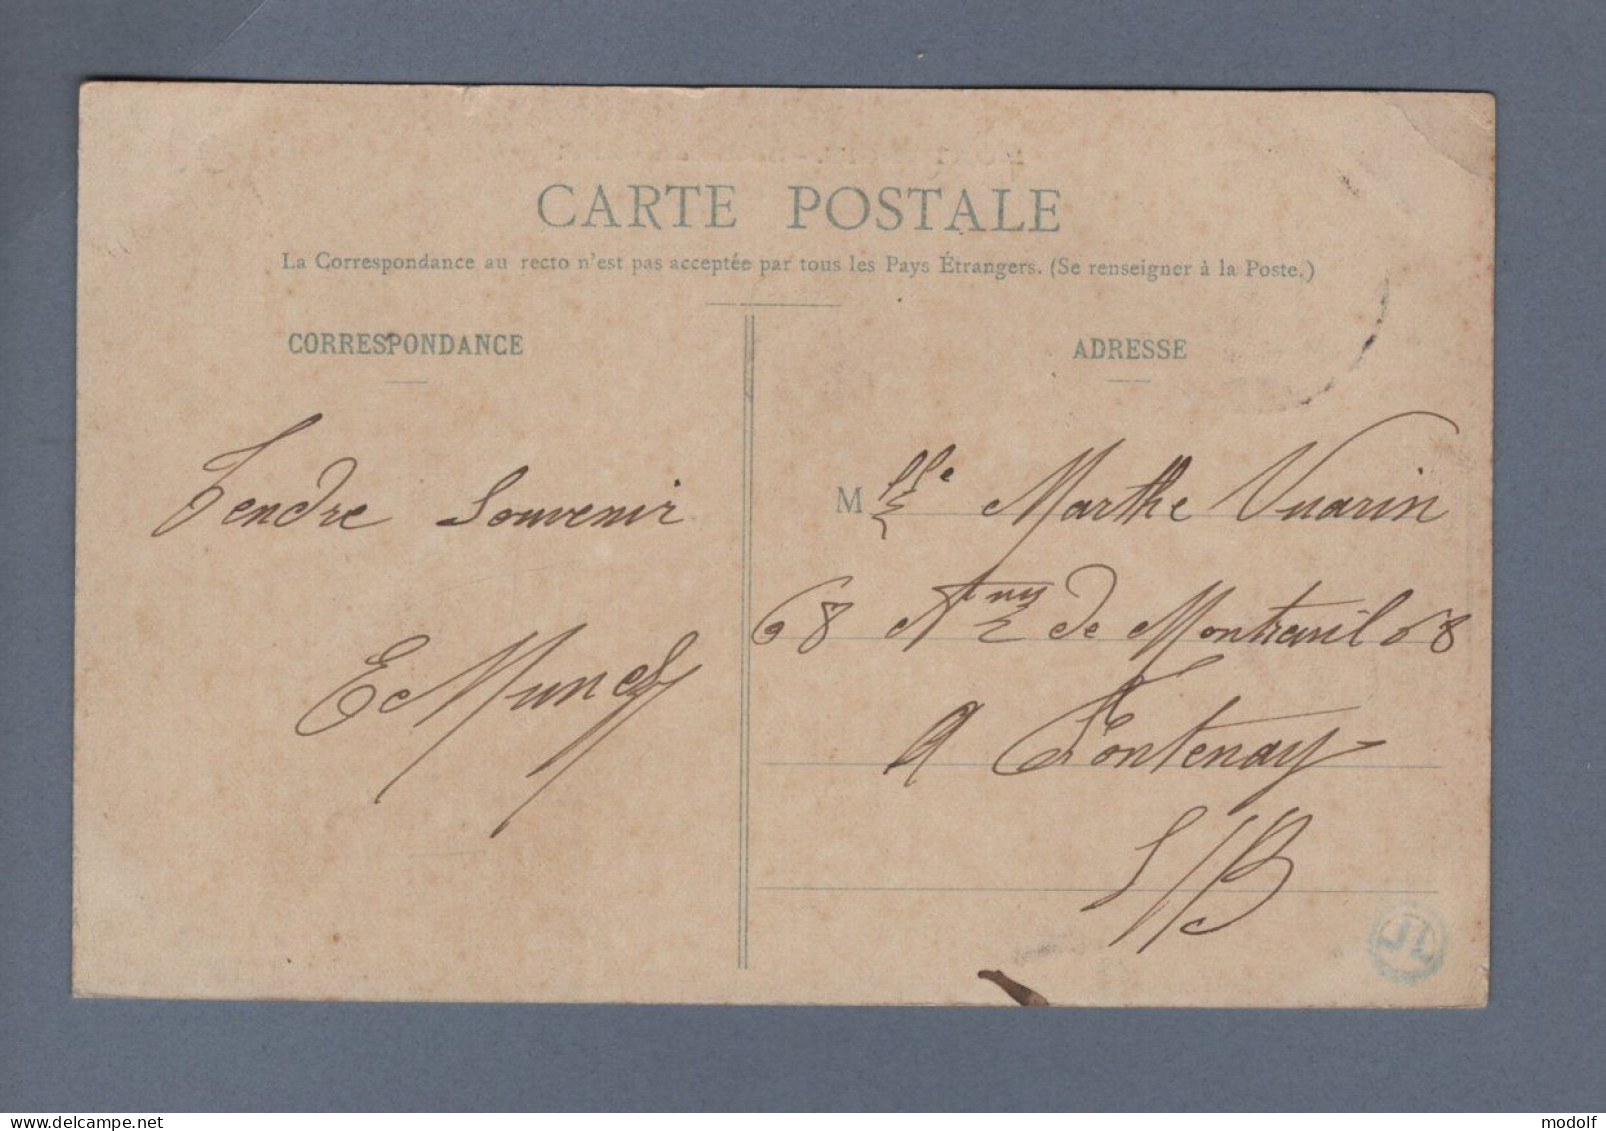 CARTE POSTALE
La Correspondance au recto n'est pas acceptée par tous les Pays Étrangers. (Se renseigner à la Poste.)
CORRESPONDANCE
Tendre Souvenir
ADRESSE
Mlle Marthe Vuarin
68 de Montreuil 68
A Fontenay
S/B
JL
delcampe.net
modolf